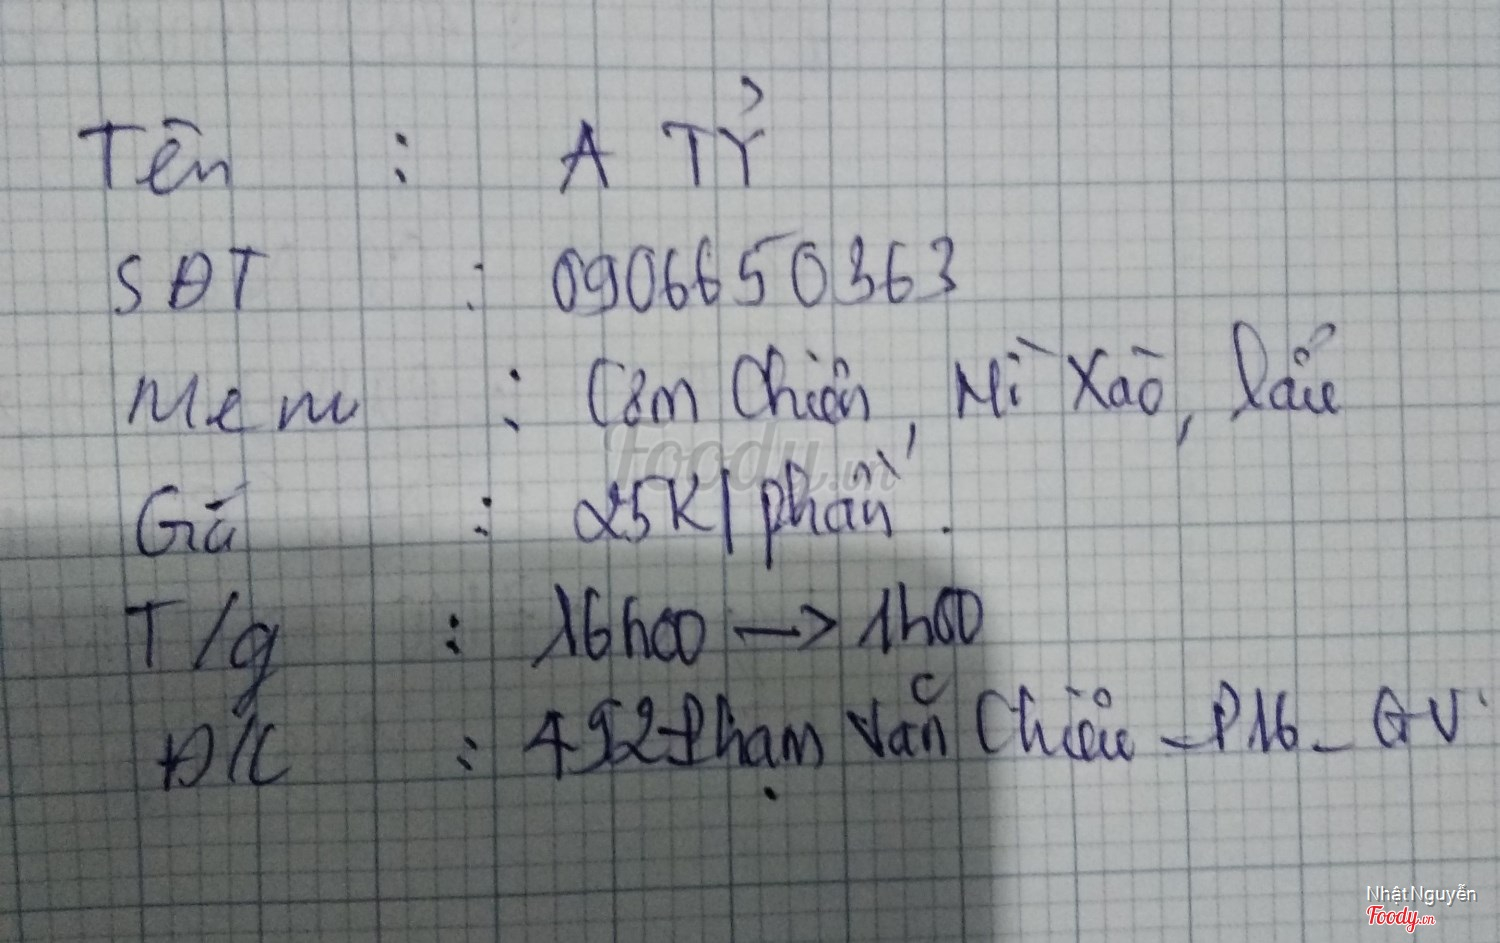 Tên : A TỶ
SĐT : 0906650363
Menu : Cơm Chiên, Mì Xào, lẩu
Giá : 25K/phần.
T/g : 16h00 → 1h00
Đ/C : 492 Phạm Văn Chiêu - P16 - GV
Foody.vn
Nhật Nguyễn
Foody.vn